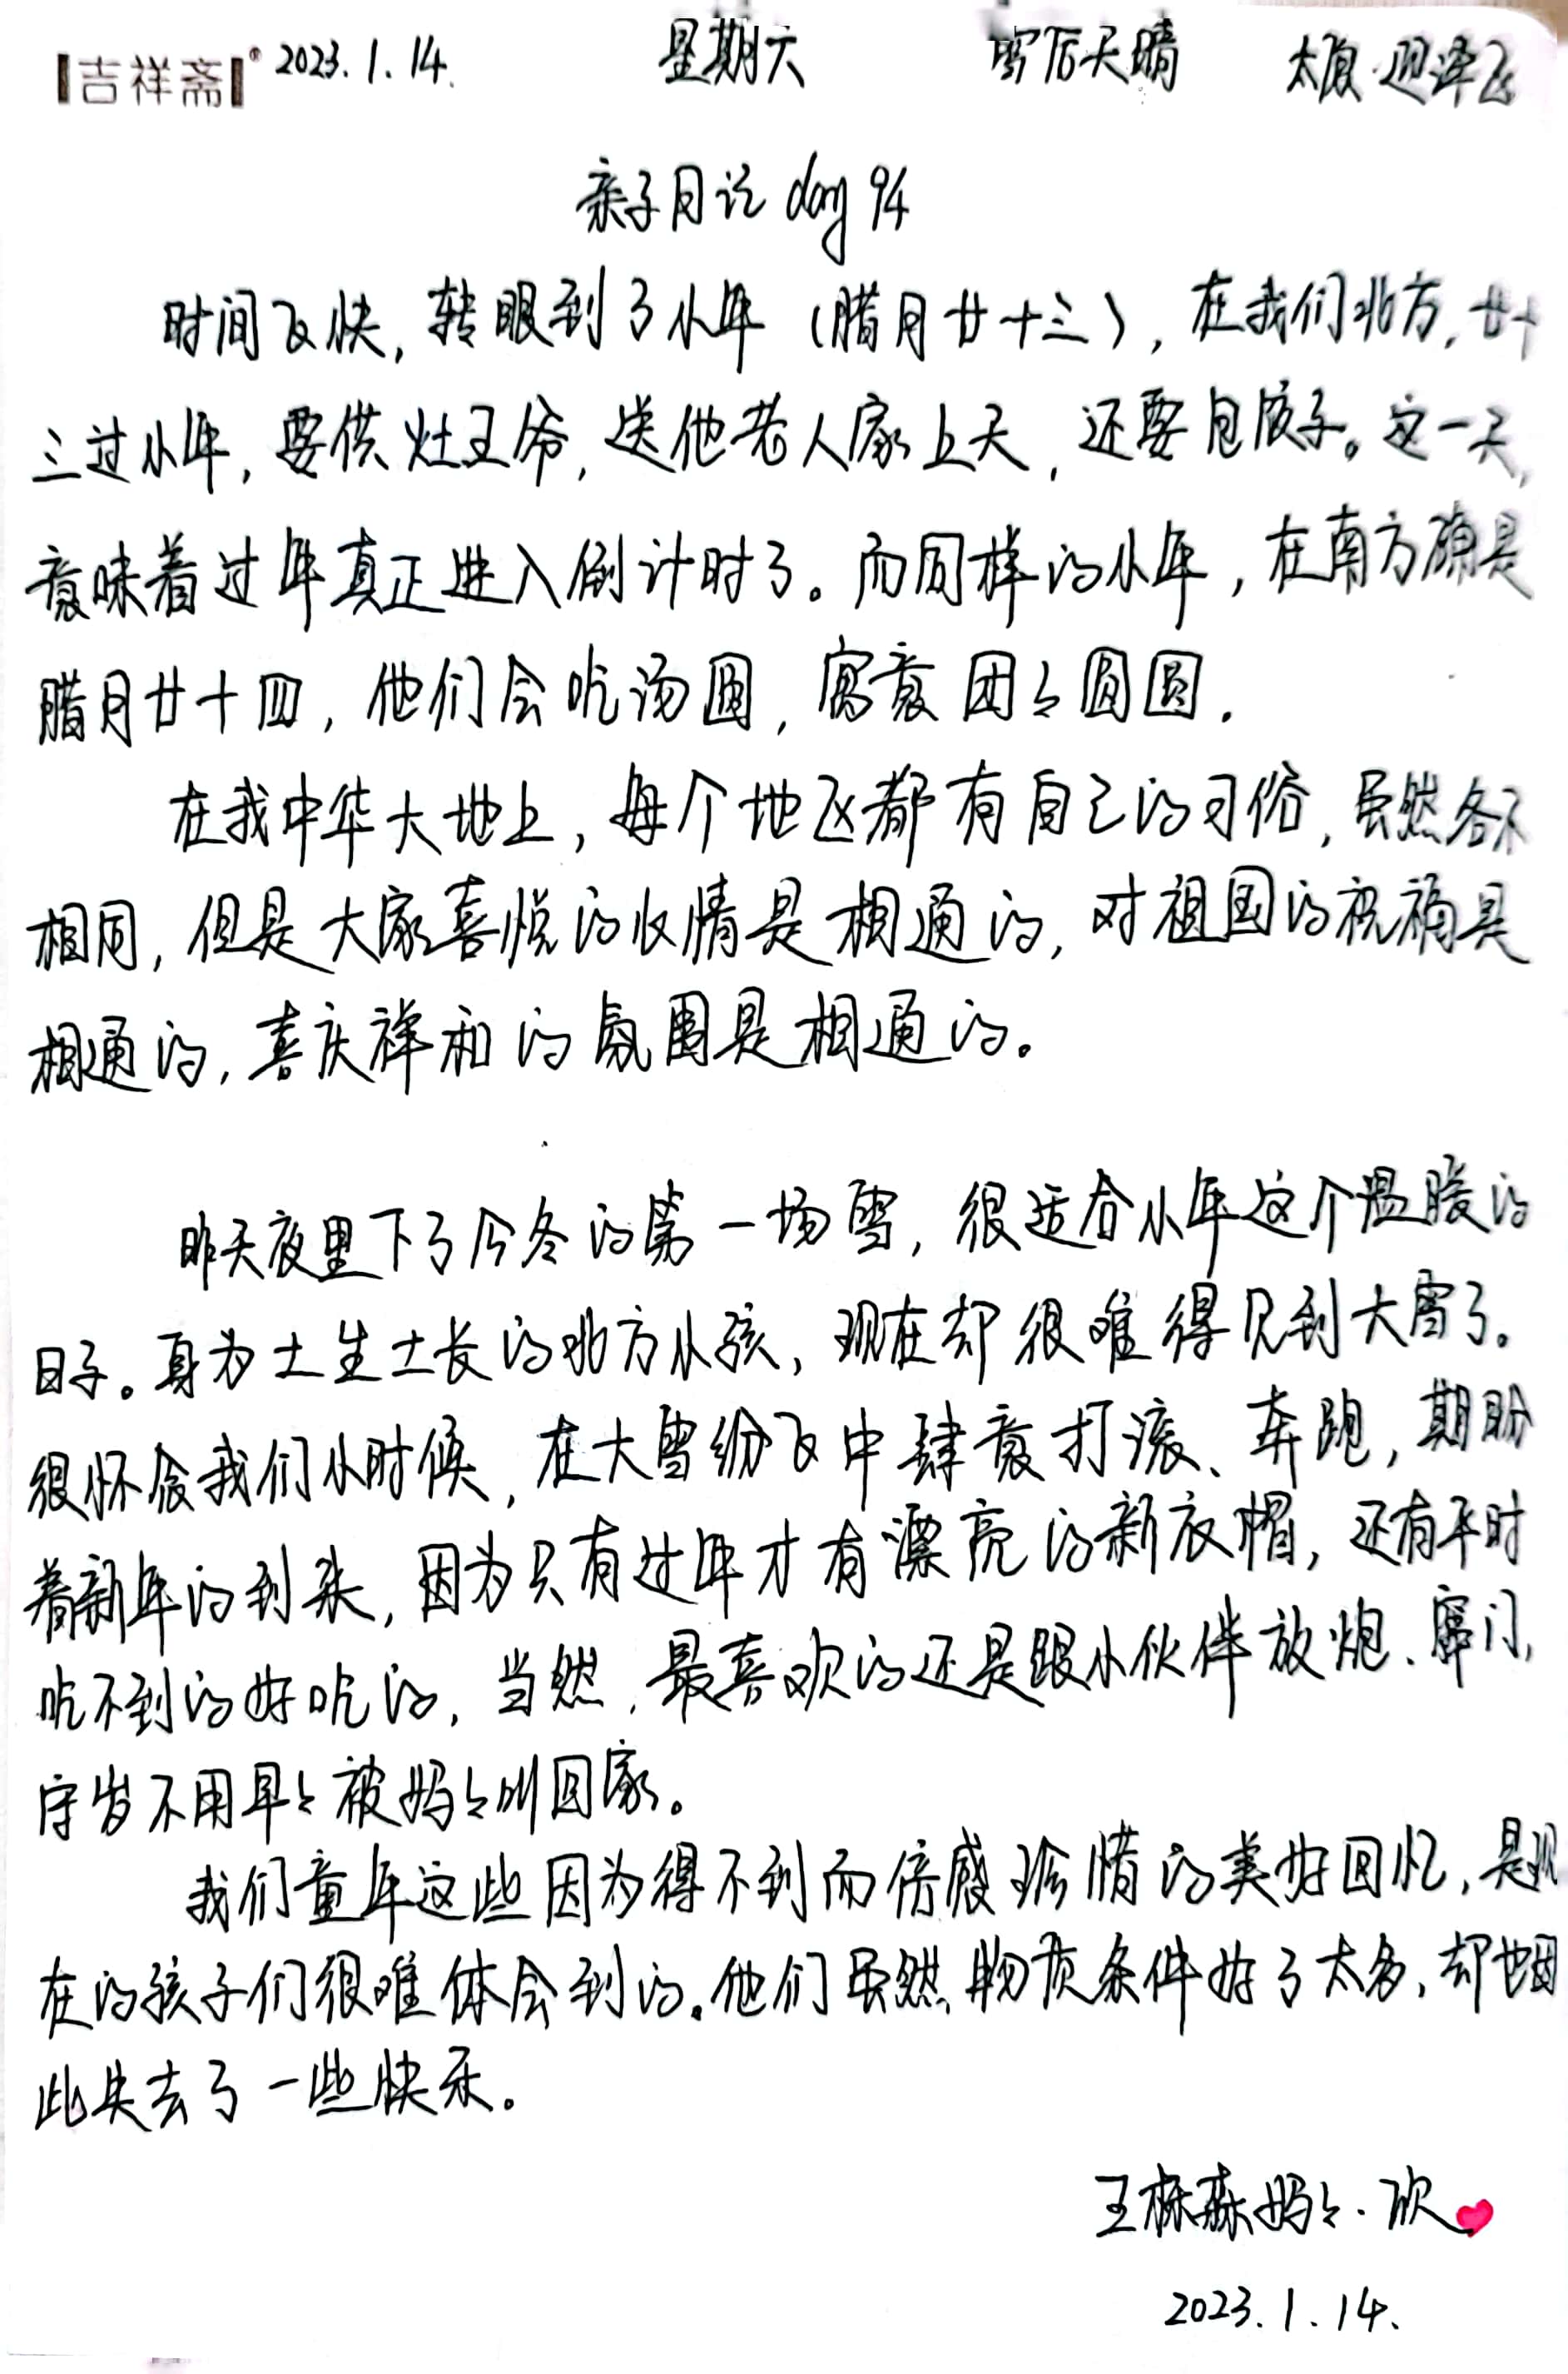 吉祥斋® 2023.1.14. 星期六 雪后天晴 太原·迎泽区
亲子日记 day 94
时间飞快，转眼到了小年（腊月廿十三），在我们北方，廿十
三过小年，要供灶王爷，送他老人家上天，还要包饺子。这一天，
意味着过年真正进入倒计时了。而同样的小年，在南方确是
腊月廿十四，他们会吃汤圆，寓意团々圆圆．
在我中华大地上，每个地区都有自己的习俗，虽然各不
相同，但是大家喜悦的心情是相通的，对祖国的祝福是
相通的，喜庆祥和的氛围是相通的。
昨天夜里下了今冬的第一场雪，很适合小年这个温暖的
日子。身为土生土长的北方小孩，现在却很难得见到大雪了。
很怀念我们小时候，在大雪纷飞中肆意打滚、奔跑，期盼
着新年的到来，因为只有过年才有漂亮的新衣帽，还有平时
吃不到的好吃的，当然，最喜欢的还是跟小伙伴放炮、窜门，
守岁不用早々被妈々叫回家。
我们童年这些因为得不到而倍感珍惜的美好回忆，是现
在的孩子们很难体会到的。他们虽然物质条件好了太多，却也因
此失去了一些快乐。
王栎森妈々．欣
2023.1.14.